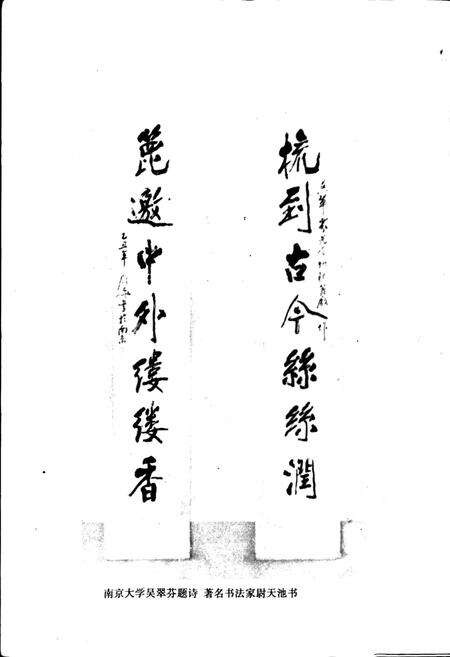 梳到古今絲絲潤
篦邀中外缕缕香
南京大学吴翠芬题诗 著名书法家尉天池书